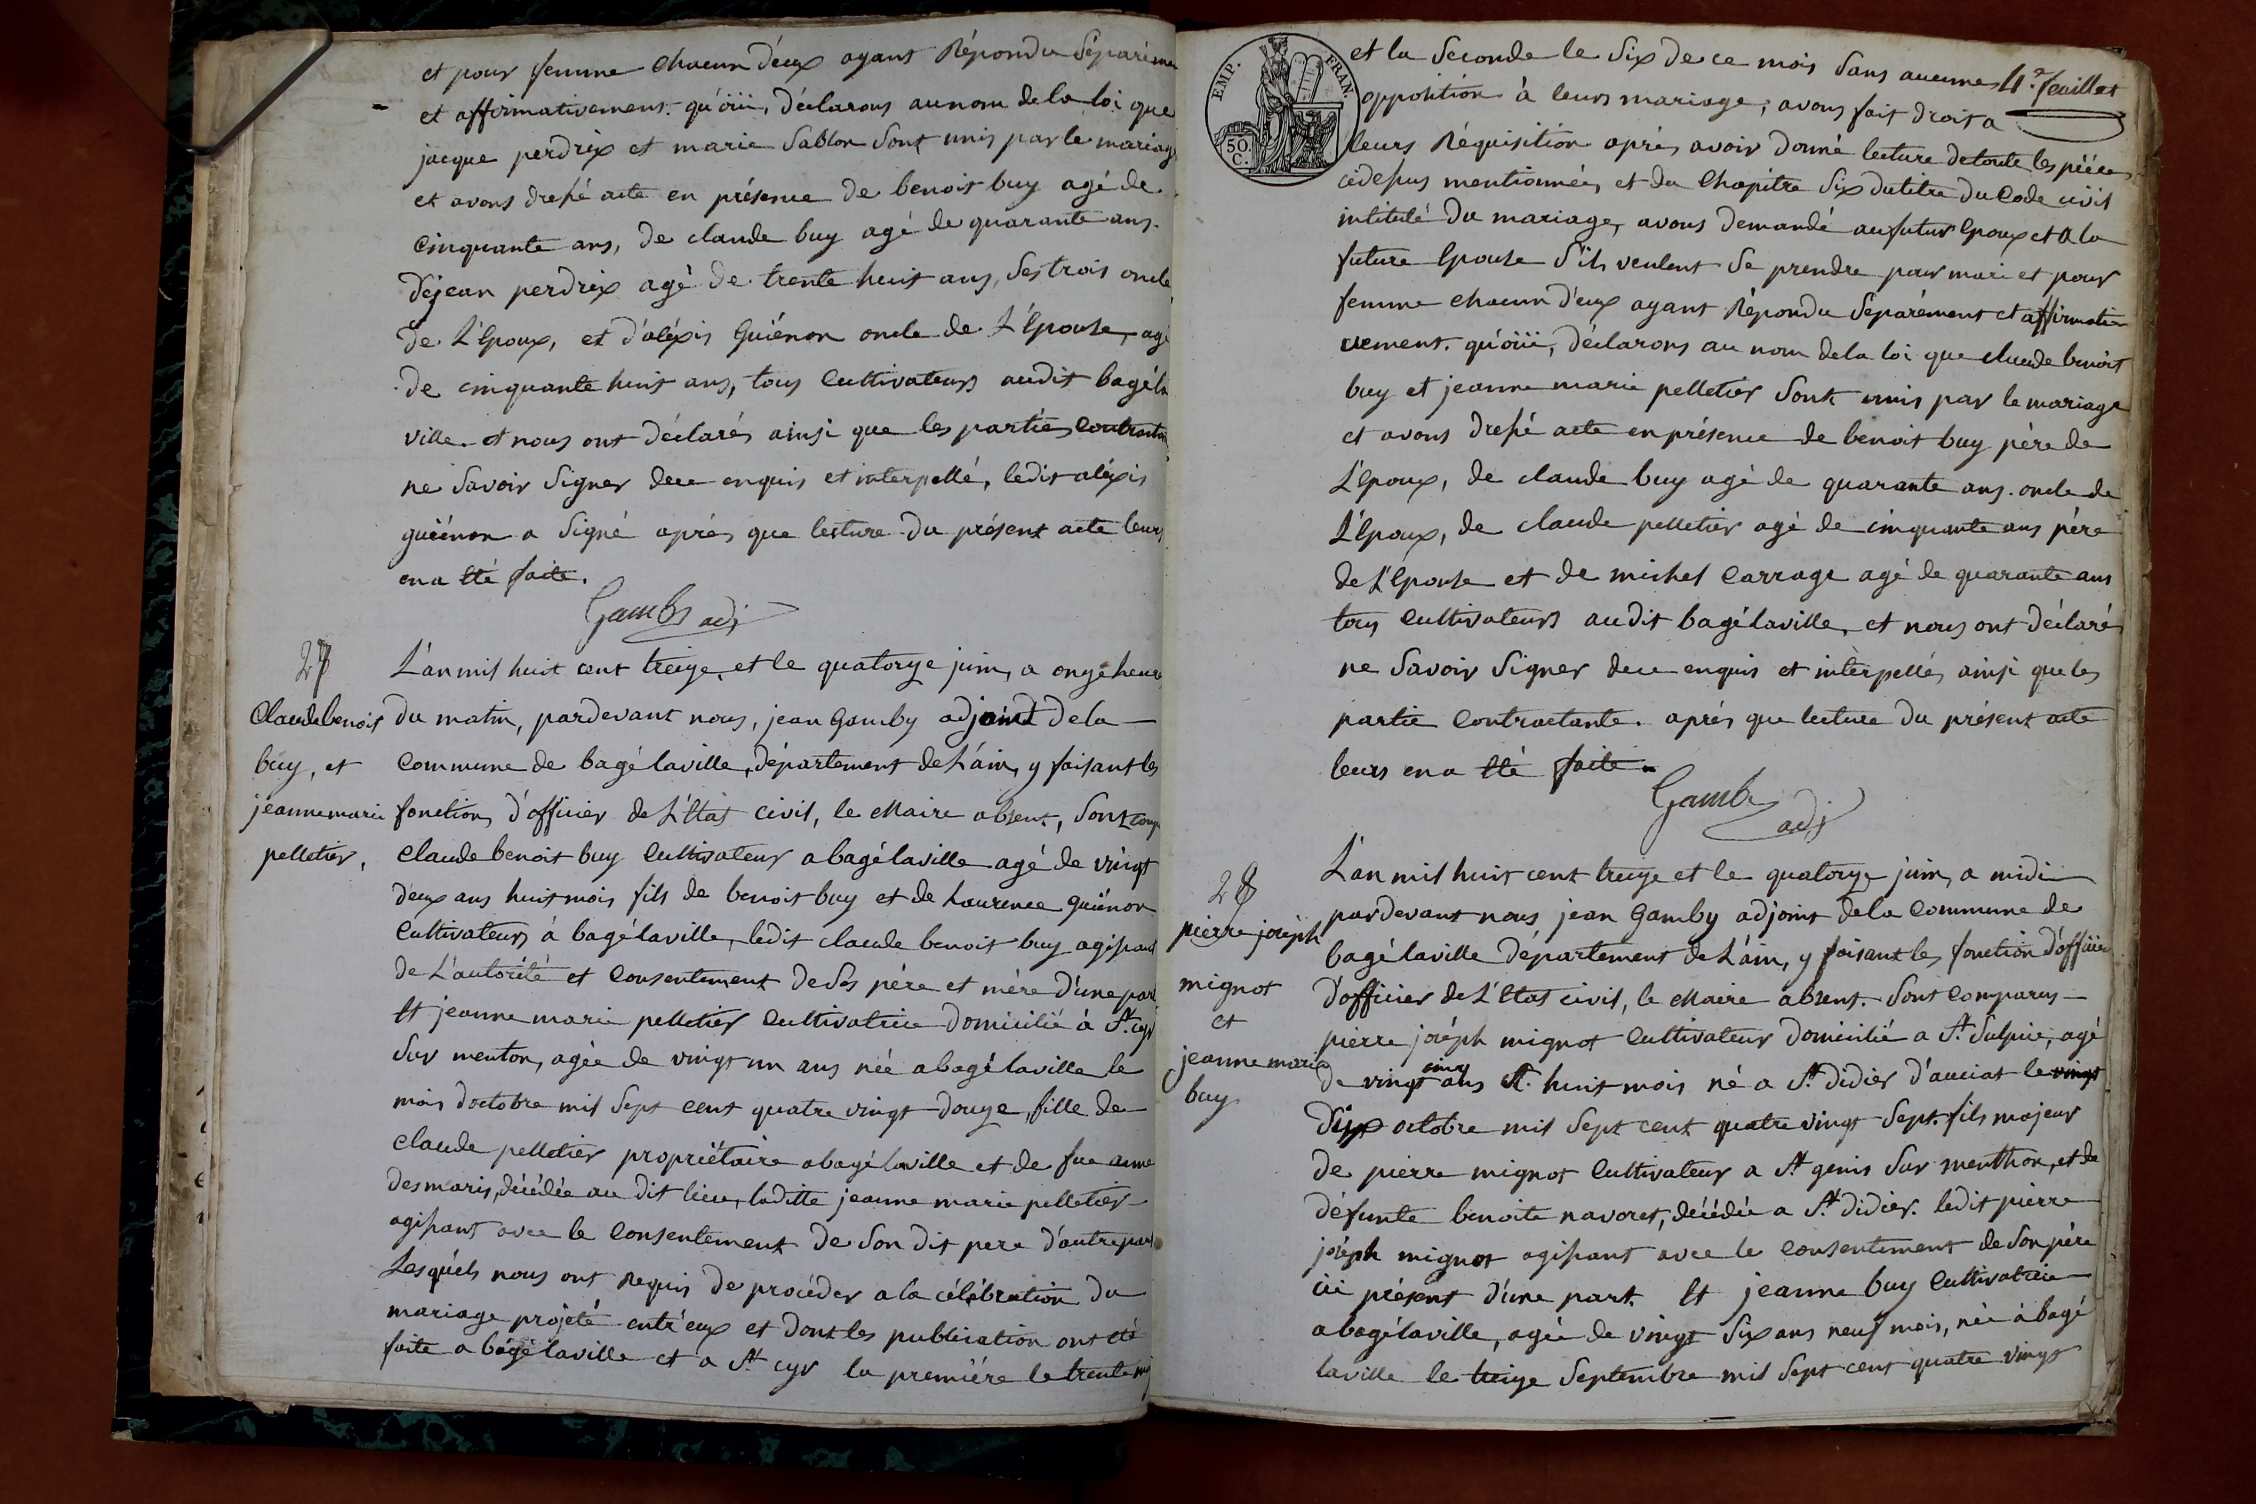 et pour femme chacun d'eux ayant Répondu Séparéme
et affirmativement. qu'oüi, déclarons au nom de la loi que
jacque perdrix et marie Sablon Sont unis par le mariag
et avons dressé acte en présence de benoit buy agé de
Cinquante ans, de claude buy agé de quarante ans.
de jean perdrix agé de trente huit ans, Ses trois oncle
de L'Epoux, et d'aléxis Guiénon oncle de L'Epouse, agé
de cinquante huit ans, tous Cultivateurs audit bagéla
ville. et nous ont déclarés ainsi que les parties Contractan
ne Savoir Signer de ce enquis et interpellé, ledit aléxis
guiénon a Signé aprés que lecture du présent acte leurs
en a Eté faite.
Gamby adj
27
Claude benoit
buy, et
jeanne marie
pelletier,
L'an mil huit cent treize, et le quatorze juin, a onze heure
du matin, pardevant nous, jean Gamby adjoint de la
Commune de bagé laville, département de L'ain, y faisant les
fonctions d'officier de L'Etat Civil, le Maire absent, Sont comp
Claude benoit buy Cultivateur a bagé laville agé de vingt
deux ans huit mois fils de benoit buy et de Laurence guiénon
Cultivateurs à bagé laville, ledit claude benoit buy agissant
de L'autorité et Consentement de Ses pére et mére d'une part
Et jeanne marie pelletier Cultivatrice domicilié à St. cyr
Sur menton, agée de vingt un ans née a bagé laville le
mois d'octobre mil Sept cent quatre vingt douze, fille de
Claude pelletier propriétaire a bagé laville et de fue anne
desmaris, décédée au dit lieu, laditte jeanne marie pelletier
agissant avec le Consentement de Son dit pere d'autre part
Lesquels nous ont Requis de procéder a la célébration du
mariage projeté entr'eux et dont les publication ont Eté
faite a bagé laville et a St. cyr la premiére le trente mai
4.e feuillet
EMP. FRAN.
50. C.
et la Seconde le Six de ce mois Sans aucune
opposition à leurs mariage, avons fait droit a
leurs Réquisition aprés avoir donné lecture de toute les piéces
cidessus mentionnées et du Chapitre Six du titre du Code civil
intitulé du mariage, avons demandé au futur Epoux et a la
future Epouse S'ils veulent Se prendre pour mari et pour
femme chacun d'eux ayant Répondu Séparément et affirmati
vement. qu'oüi, déclarons au nom de la loi que claude benoit
buy et jeanne marie pelletier Sont unis par le mariage
et avons dressé acte en présence de benoit buy pére de
L'Epoux, de claude buy agé de quarante ans. oncle de
L'Epoux, de claude pelletier agé de cinquante ans pére
de L'Epouse et de michel Carrage agé de quarante ans
tous Cultivateurs audit bagé laville, et nous ont déclarés
ne Savoir Signer de ce enquis et interpellés ainsi que les
partie Contractante. aprés que lecture du présent acte
leurs en a Eté faite.
Gamby
adj
28
pierre joséph
mignot
et
jeanne marie
buy
L'an mil huit cent treize et le quatorze juin, a midi
pardevant nous jean Gamby adjoint de la Commune de
bagé laville département de L'ain, y faisant les fonction d'officier
d'officier de L'Etat civil, le Maire absent. Sont Comparus
pierre joséph mignot Cultivateur domicilié a St. Sulpice, agé
de vingt cinq ans Et. huit mois né a St. didier d'auciat le vingt
dix octobre mil Sept cent quatre vingt Sept. fils majeur
de pierre mignot Cultivateur a St. genis Sur menthon, et de
défunte benoite navoret, décédée a St. didier. ledit pierre
joséph mignot agissant avec le Consentement de Son pére
ici présent d'une part. Et jeanne buy Cultivatrice
a bagé laville, agée de vingt Six ans neuf mois, née à bagé
laville le treize Septembre mil Sept cent quatre vingt